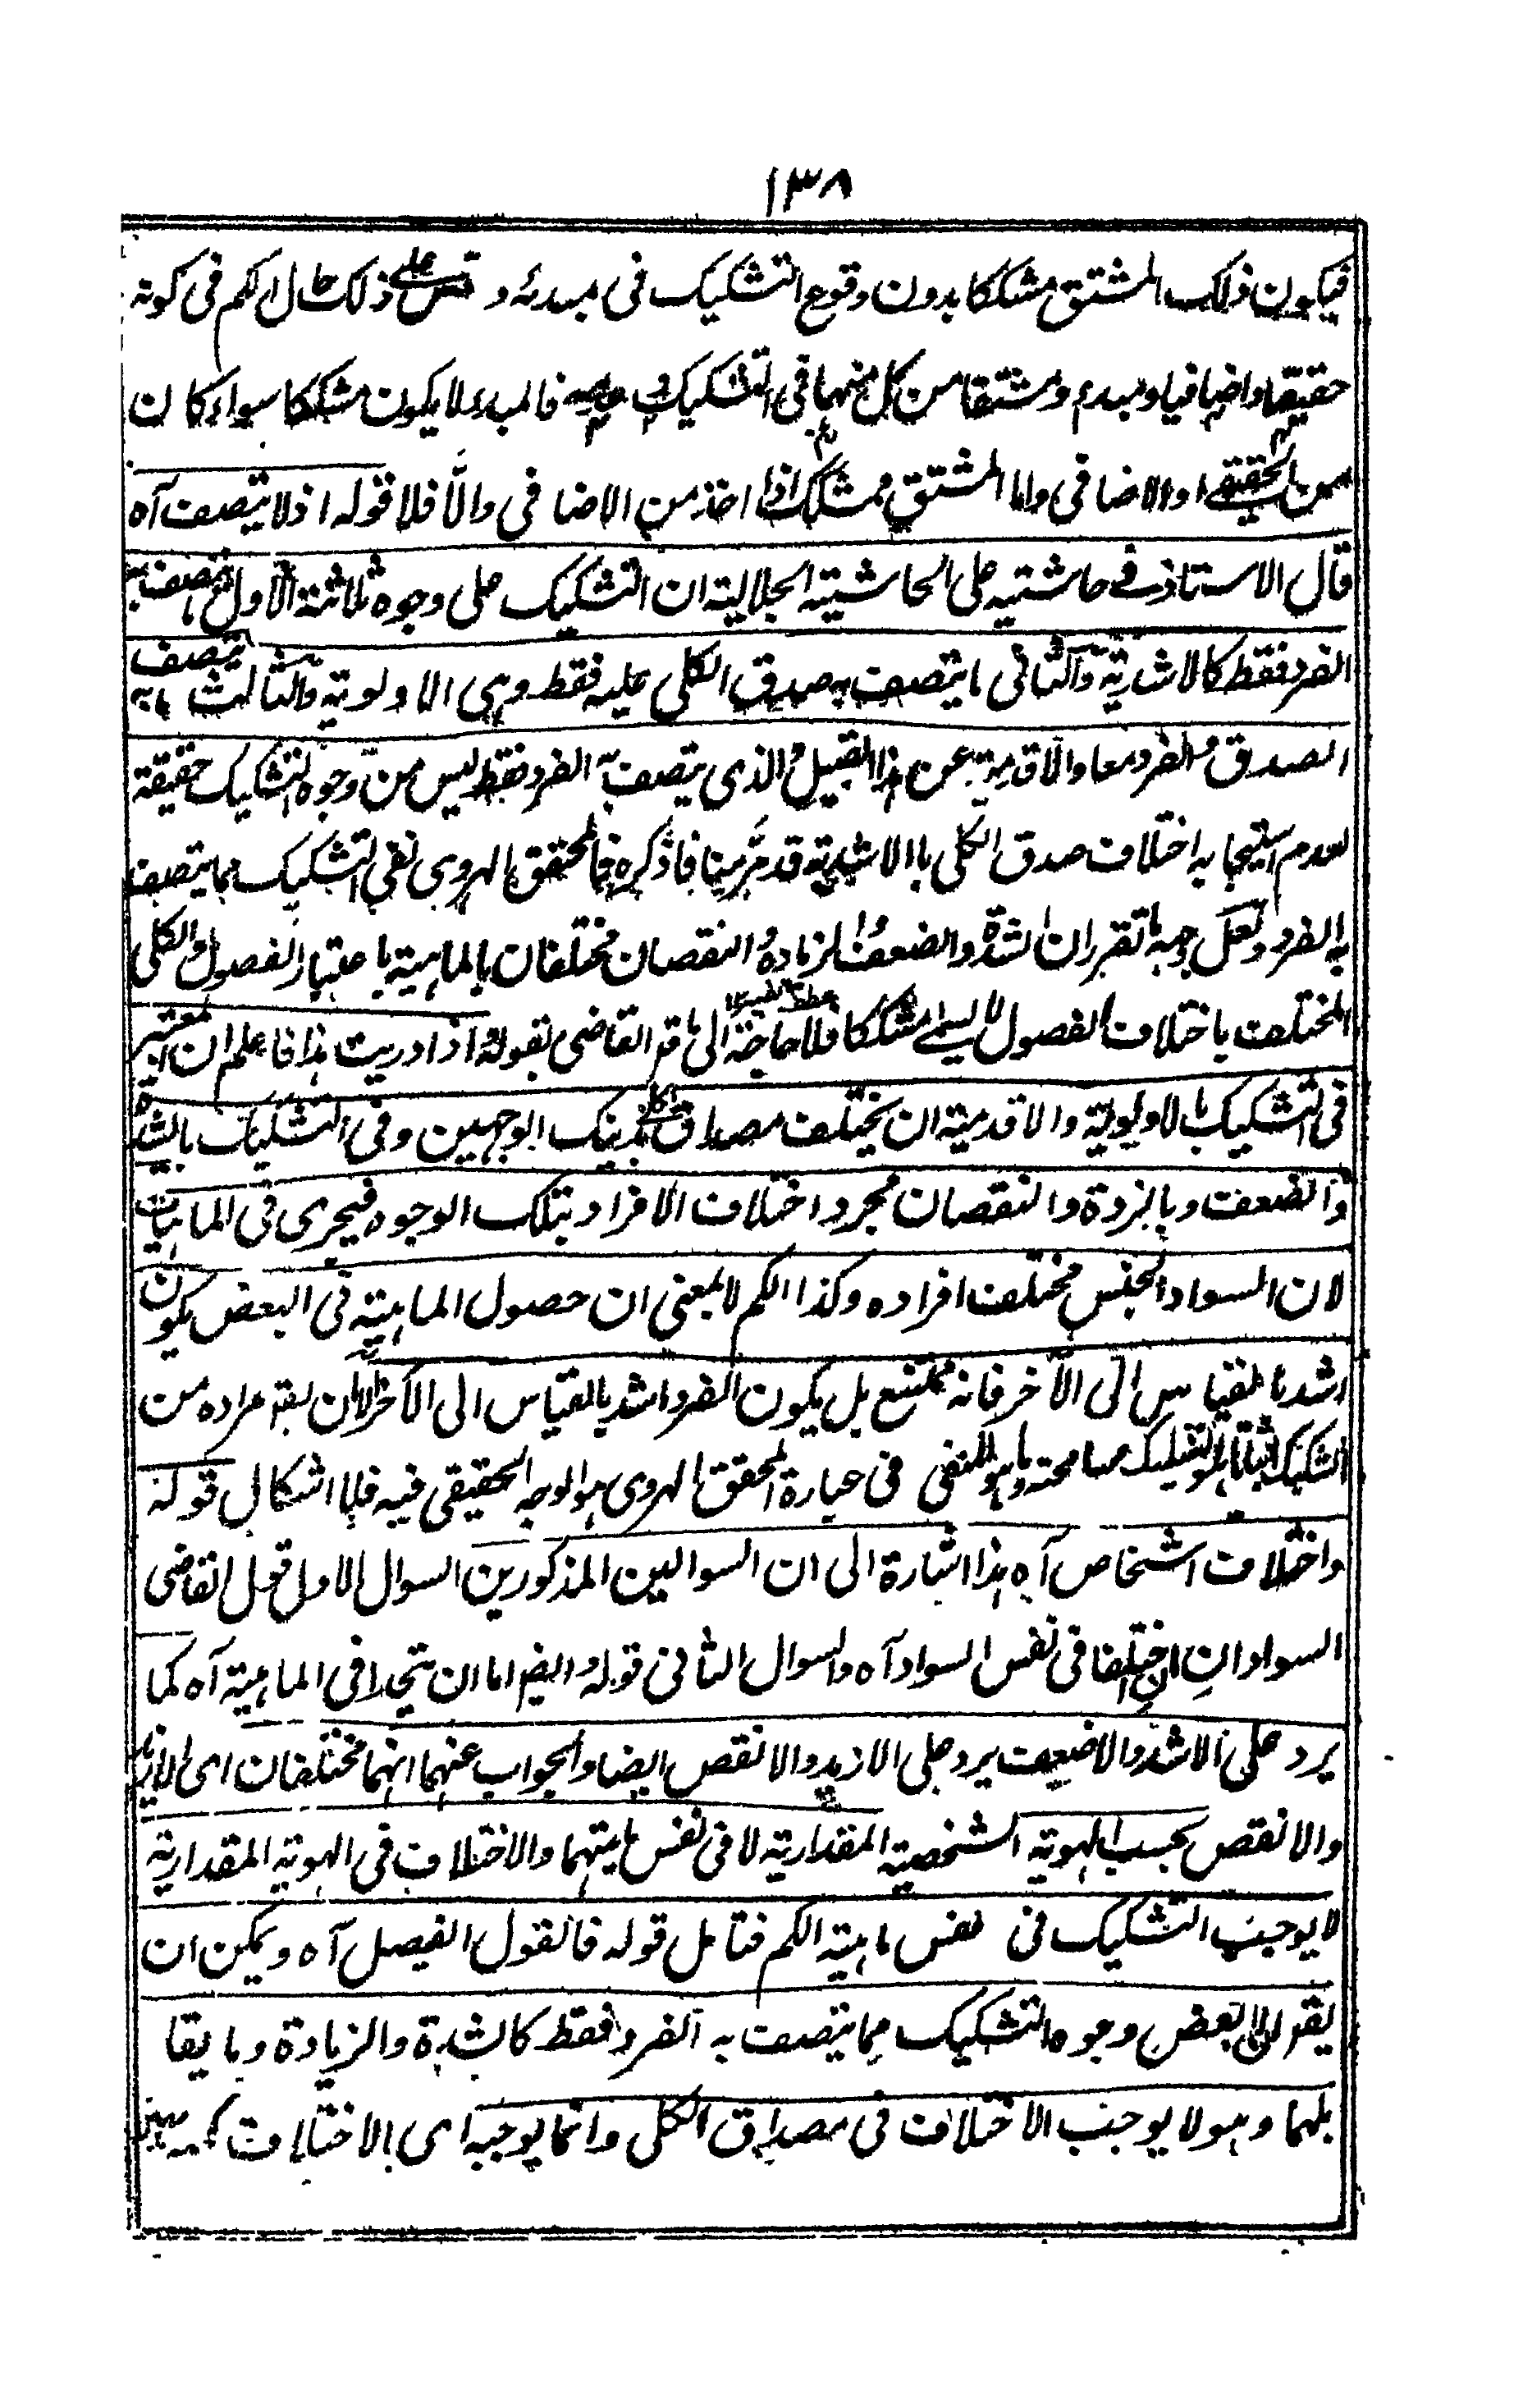 ١٣٨
فيكون ذلك المشتق مشككا بدون وقوع التشكيك فى مبدئه و قس على ذلك حال الكم فى كونه
حقيقيا واضافيا ومبدء ومشتقا من كل منهما فى التشكيك فالمبدء لا يكون مشككا سواء كان
من الحقيقے او الاضافى واما المشتق فمشكك اذا اخذ من الاضافى والّا فلا قوله اذ لا يتصف آه
قال الاستاذ فے حاشتيه على الحاشيته الجلاليته ان التشكيك على وجوه ثلاثة الاول ما يتصف به
الفرد فقط كالاشدية والثانى ما يتصف به صدق الكلى عليه فقط وهى الاولوية والثالث ما يتصف به
الصدق والفرد معا والاقدمية من هذا القبيل والذى يتصف به الفرد فقط ليس من وجوه التشكيك حقيقة
لعدم استيجابه اختلاف صدق الكلى بالاشدية قد مرّ منا فما ذكره المحقق الهروى نفى التشكيك بما يتصف
به الفرد ولعل وجهه ما تقرر ان الشدة والضعف والزيادة والنقصان مختلفان بالماهية باعتبار الفصول والكلى
المختلف باختلاف الفصول لا يسمے مشككا فلا حاجة الى ما قد القاضى بقوله اذا دريت هذا فاعلم ان المعتبر
فى التشكيك بالاولوية والاقدمية ان يختلف مصداق الكلے بذينك الوجهين وفى التشكيك بالشدة
والضعف وبالزيادة والنقصان مجرد اختلاف الافراد بتلك الوجوه فيجرى فى الماهيات
لان السواد الجنس مختلف افراده وكذا الكم لا بمعنى ان حصول الماهية فى البعض يكون
اشد بالقياس الى الآخر فانه ممتنع بل يكون الفرد اشد بالقياس الى الآخر الا ان يقر مراده من
التشكيك مسامحة وما هو المنفى فى عبارة المحقق الهروى هو الوجه الحقيقى فيه فلا اشكال قوله
واختلاف اشخاص آه هذا اشارة الى ان السوالين المذكورين السوال الاول قول القاضى
السوادان ان اختلفا فى نفس السواد آه والسوال الثانى قوله وايضا اما ان يتحدا فى الماهية آه كما
يرد على الاشد والاضعف يرد على الازيد والانقص ايضا والجواب عنهما انهما مختلفان اى الازيد
والانقص بحسب الهوية الشخصية المقدارية لا فى نفس ماهيتهما والاختلاف فى الهوية المقدارية
لا يوجب التشكيك فى نفس ماهية الكم فتامل قوله فالقول الفيصل آه ويمكن ان
يقر ان بعض وجوه التشكيك مما يتصف به الفرد فقط كالشدة والزيادة وما يقا
بلهما وهو لا يوجب الاختلاف فى مصداق الكل وانما يوجبه اى الاختلاف